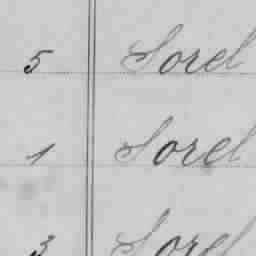 5 Sorel
1 Sorel
3 Sorel